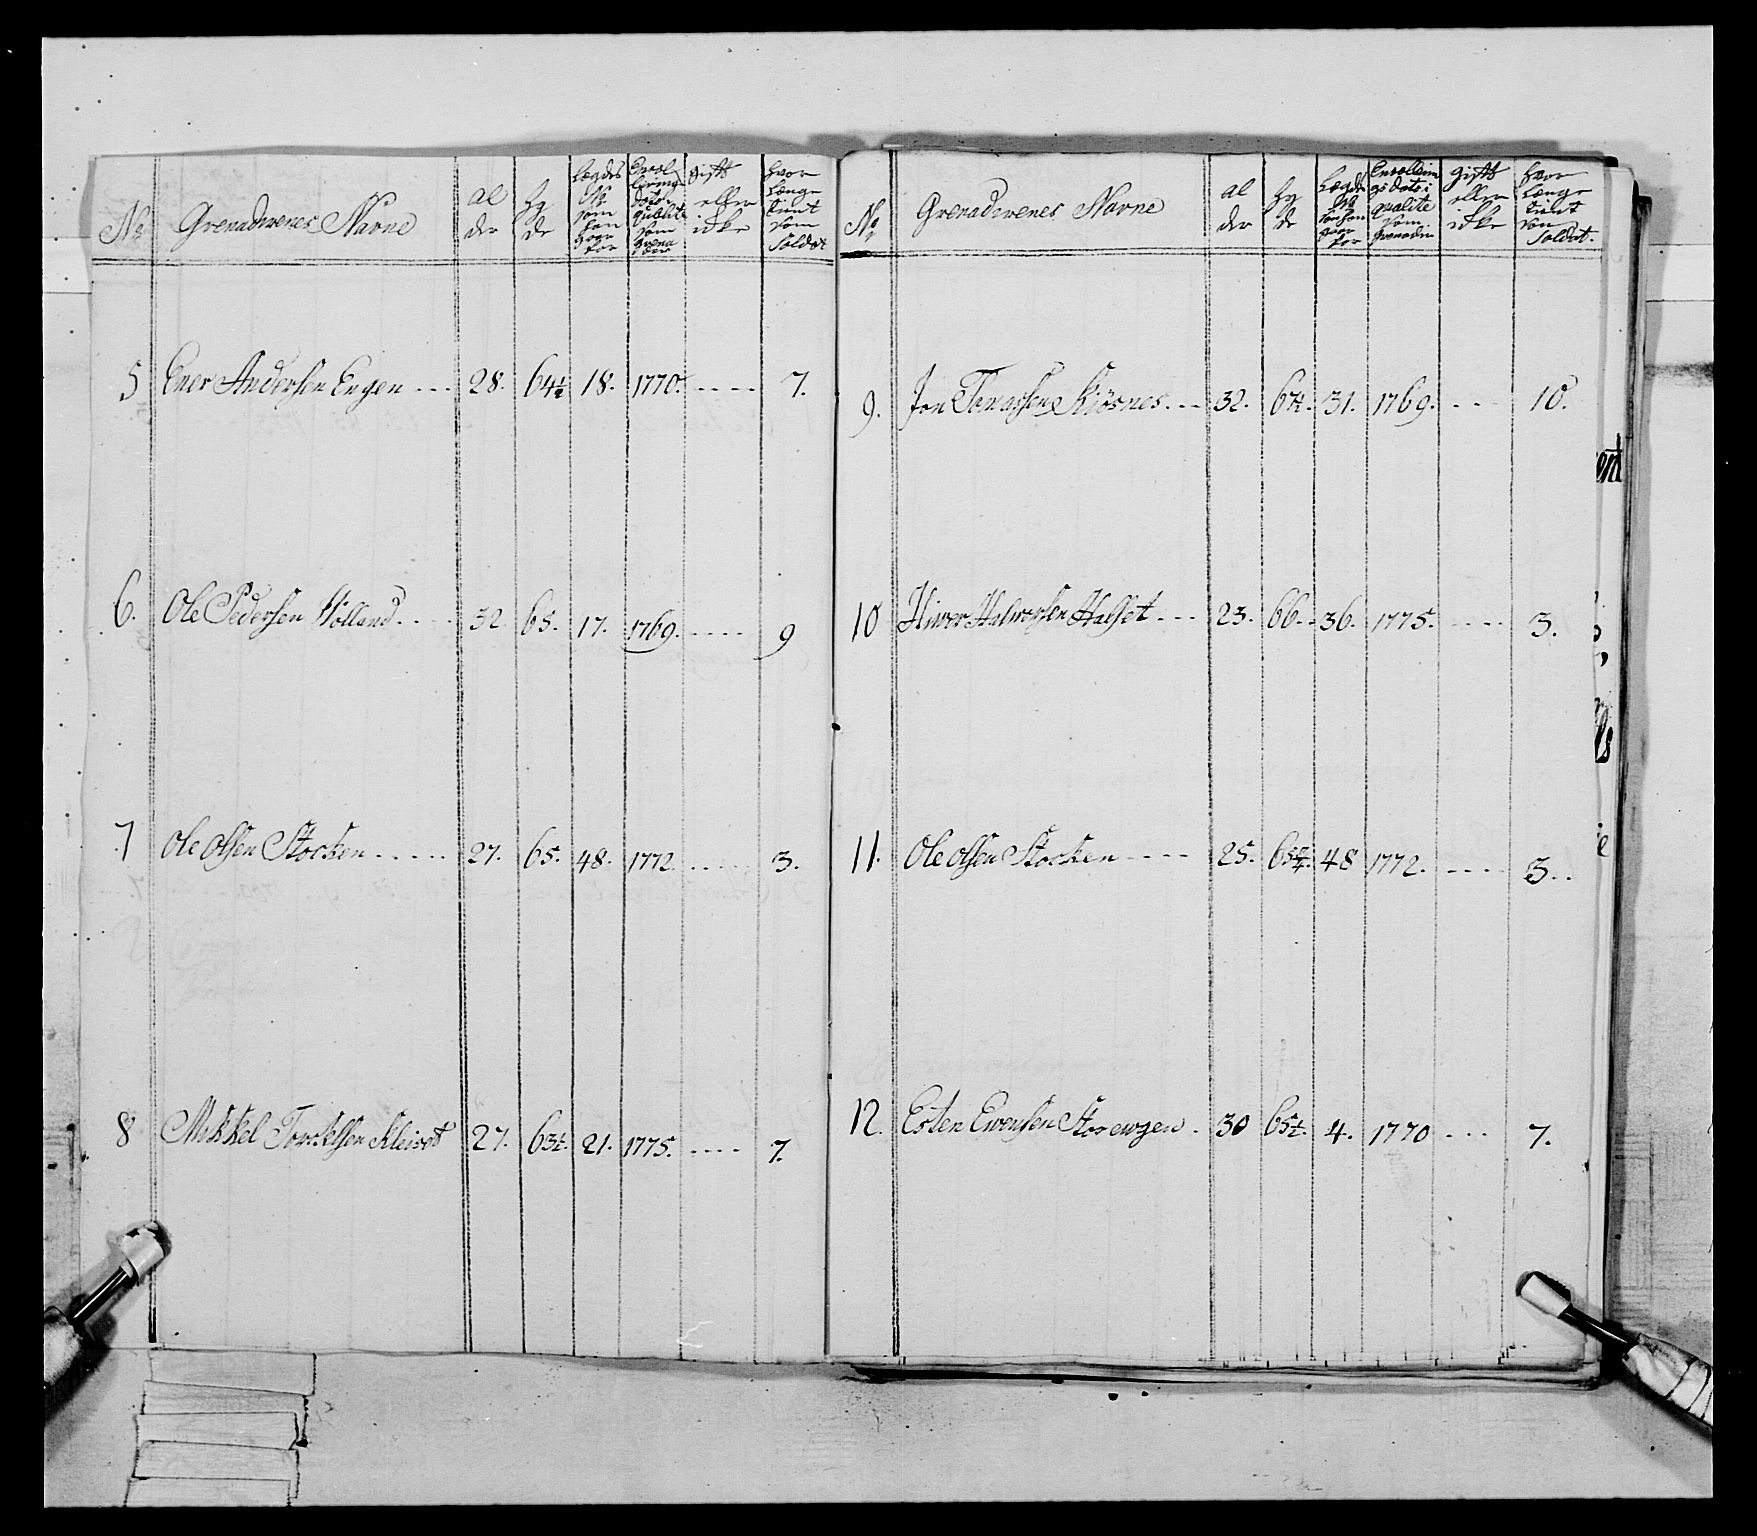 No Grenaderenes Navne al der hy de Lægdes No som han staar for Enrolleringe dato i qualite som grena deer gift eller ikke hvor længe tient som Soldat
5 Ener Andersen Engen --- 28. 64½ 18. 1770. ---- 7.
6. Ole Pedersen Wolland. --- 32. 65. 17. 1769. ---- 9
7 Ole Olsen Stocken ----- 27. 65. 48. 1772. ---- 3.
8 Mikkel Torckelsen Kleived 27. 63½. 21. 1775. ---- 7.
No Grenaderenes Navne al der hy de Lægdes No som han staar for Enrollering gs dato i qualite som Grenadeer gift eller ikke hvor længe tient som Soldat.
9. Jon Tomassen Kiösnes. -- 32. 31. 1769. --- 10.
10 Hiver Halvorsen Halset --- 23. 66. 36. 1775. ---- 3.
11. Ole Olsen Stocken ---- 25. 48 1772. ---- 3.
12. Esten Evensen Storewgen. 30 65½. 4. 1770 --- 7.